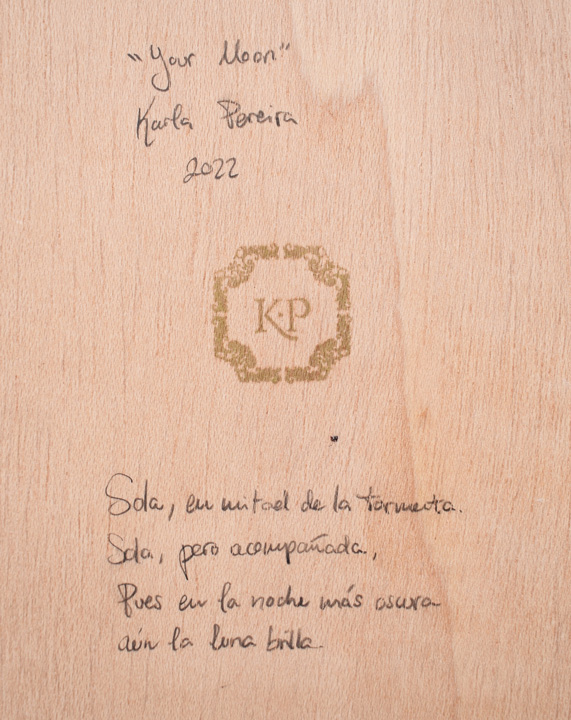 "Your Moon"
Karla Pereira
2022
K·P
Sola, en mitad de la tormenta.
Sola, pero acompañada,
Pues en la noche más oscura
aún la luna brilla.